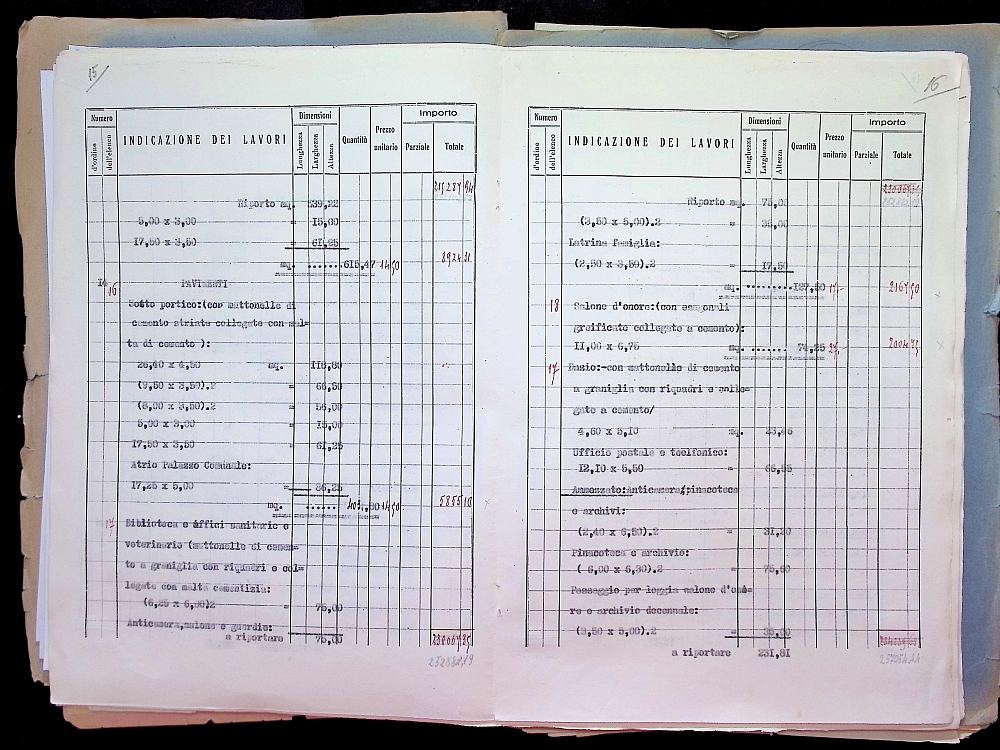 15
Numero
d'ordine
dell'elenco
INDICAZIONE DEI LAVORI
Dimensioni
Lunghezza
Larghezza
Altezza
Quantità
Prezzo
unitario
Importo
Parziale
Totale
Riporto mq. 539,22
5,00 x 3,00 = 15,00
17,50 x 3,50 = 61,25
mq. ....... 615,47 14,50 8924,31
14 16 PAVIMENTI
Sotto portico:(con mattonelle di
cemento striate collegate con mal=
ta di cemento ):
26,40 x 4,50 mq. 118,80
(9,50 x 3,50).2 = 66,50
(8,00 x 3,50).2 = 56,00
5,00 x 3,00 = 15,00
17,50 x 3,50 = 61,25
Atrio Palazzo Comunale:
17,25 x 5,00 = 86,25
mq. ...... 14,50 5855,10
17 Biblioteca e uffici sanitario e
veterinario (mattonelle di cemen=
to a graniglia con riquadri e col=
legate con malta cementizia:
(6,25 x 6,00)2 = 75,00
Anticamera,salone e guardie:
a riportare 75,00
16
Numero
d'ordine
dell'elenco
INDICAZIONE DEI LAVORI
Dimensioni
Lunghezza
Larghezza
Altezza
Quantità
Prezzo
unitario
Importo
Parziale
Totale
Riporto mq. 75,00
(3,50 x 5,00).2 = 35,00
Latrina famiglia:
(2,50 x 3,50).2 17,50
mq. ......... 127,50 17,- 2167,50
18 Salone d'onore:(con esagonali
greificate collegate a cemento):
11,00 x 6,75 mq. ....... 74,25 27,- 2004,75
17 Dazio:-con mattonelle di cemento
a graniglia con riquadri e colle=
gate a cemento/
4,60 x 5,10 mq. 23,46
Ufficio postale e teelfonico:
12,10 x 5,50 = 66,55
Ammezzato:Anticamera,pinacoteca
e archivi:
(2,40 x 6,50).2 = 31,20
Pinacoteca e archivio:
( 6,00 x 6,30).2 = 75,60
Passaggio per loggia salone d'ono=
re e archivio decennale:
(3,50 x 5,00).2 = 35,00
a riportare 231,81